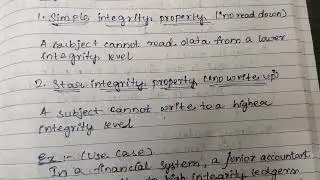 1. Simple integrity property ("no read down)
A subject cannot read data from a lower
integrity level
2. Star integrity property ("no write up")
A subject cannot write to a higher
integrity level
Ex :- (Use Case)
In a financial system, a junior accountant
to high integrity ledgers